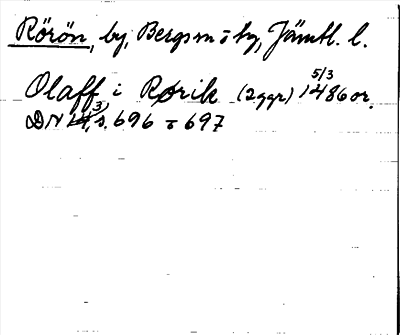 Rörön, by, Bergs sn o tg, Jämtl. l.
Olaff i Rørik (2 ggr) 5/3 1486 or.
DN 3, s. 696 o 697